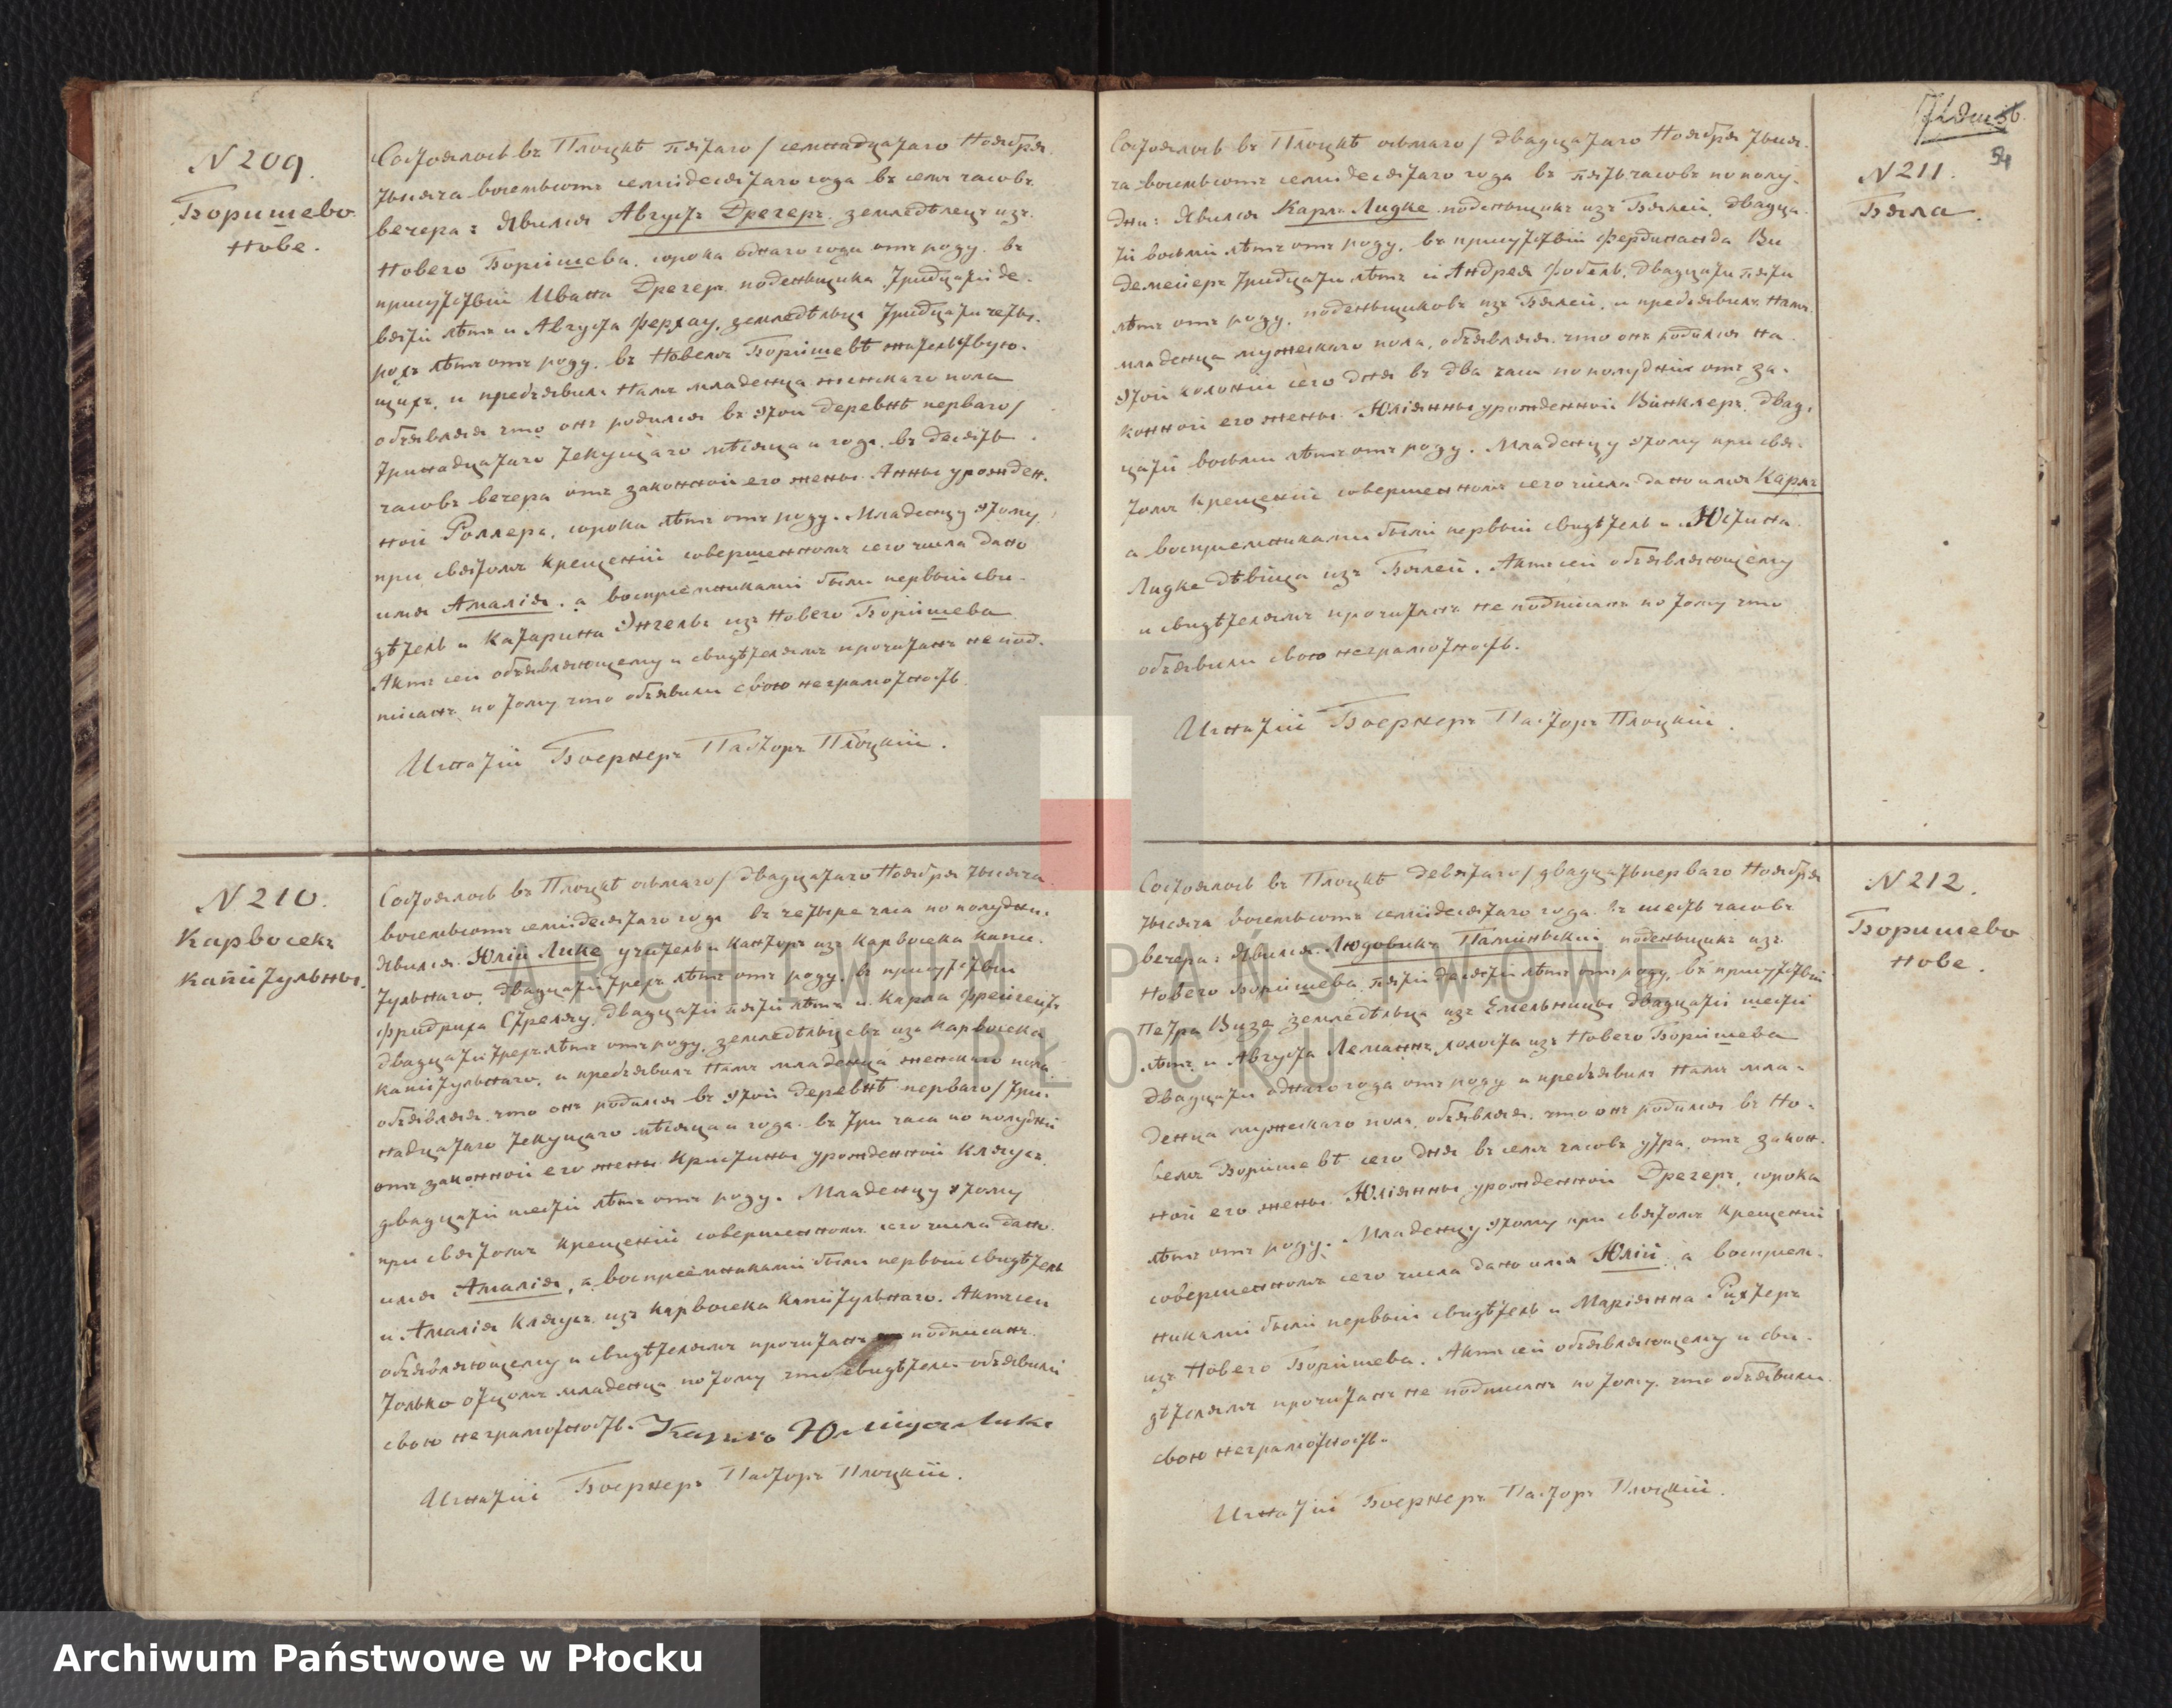 N 209.
Боришево
Нове.
Состоялось въ Плоцкѣ пятаго / семнадцатаго Ноября
тысяча восемьсотъ семидесятаго года въ семъ часовъ
вечера: Явился Августъ Дрегеръ земледѣлецъ изъ
Новего Боришева, сорока однаго года отъ роду, въ
присутствіи Ивана Дрегеръ поденьщика тридцати де-
вяти лѣтъ и Августа Фертау, земледѣльца тридцати четы-
рохъ лѣтъ отъ роду, въ Новемъ Боришевѣ жительствую-
щихъ, и предъявилъ Намъ младенца женскаго пола
объявляя что онъ родился въ этой деревнѣ перваго /
тринадцатаго текущаго мѣсяца и года, въ десять
часовъ вечера отъ законной его жены Анны урожден-
ной Роллеръ, сорока лѣтъ отъ роду. Младенцу этому
при святомъ крещеніи совершенномъ сего числа дано
имя Амалія, а воспріемниками были первый сви-
дѣтель и Катарина Энгель изъ Новего Боришева
Актъ сей объявляющему и свидѣтелямъ прочитанъ не под-
писанъ потому что объявили свою неграмотность.
Игнатій Боернеръ Пасторъ Плоцкій.
N 210.
Карвосекъ
Капитульны.
Состоялось въ Плоцкѣ осьмаго / двадцатаго Ноября тысяча
восемьсотъ семидесятаго года въ четыре часа пополудни.
Явился Юлій Лике учитель и Канторъ изъ Карвосека Капи-
тульнаго, двадцати трехъ лѣтъ отъ роду, въ присутствіи
Фридриха Стрелау, двадцати пяти лѣтъ и Карла
двадцати трехъ лѣтъ отъ роду, земледѣльцевъ изъ Карвосека
Капитульнаго, и предъявилъ Намъ младенца женскаго пола
объявляя что онъ родился въ этой деревнѣ перваго / три-
надцатаго текущаго мѣсяца и года въ три часа пополудни
отъ законной его жены Кристины урожденной Клаусъ,
двадцати шести лѣтъ отъ роду. Младенцу этому
при святомъ крещеніи совершенномъ сего числа дано
имя Амалія, а воспріемниками были первый свидѣтель
и Амалія Клаусъ изъ Карвосека Капитульнаго. Актъ сей
объявляющему и свидѣтелямъ прочитанъ подписанъ
только отцомъ младенца потому что свидѣтели объявили
свою неграмотность. Юліусъ Лике
Игнатій Боернеръ Пасторъ Плоцкій.
54
N 211.
Бяла.
Состоялось въ Плоцкѣ осьмаго / двадцатаго Ноября тыся-
ча восемьсотъ семидесятаго года въ пять часовъ пополу-
дни: Явился Карлъ Лидке поденьщикъ изъ Бялей, двадца-
ти восьми лѣтъ отъ роду, въ присутствіи Фердинанда Ви
демейеръ тридцати лѣтъ и Андрея Фобель, двадцати пяти
лѣтъ отъ роду, поденьщиковъ изъ Бялей, и предъявилъ Намъ
младенца мужескаго пола, объявляя что онъ родился на
этой колоніи сего дня въ два часа пополудни отъ за-
конной его жены Юліянны урожденной Винклеръ, двад-
цати восьми лѣтъ отъ роду. Младенцу этому при свя-
томъ крещеніи совершенномъ сего числа дано имя Карлъ
а воспріемниками были первый свидѣтель и Юстина
Лидке дѣвица изъ Бялей. Актъ сей объявляющему
и свидѣтелямъ прочитанъ не подписанъ потому что
объявили свою неграмотность.
Игнатій Боернеръ Пасторъ Плоцкій.
N 212.
Боришево
Нове.
Состоялось въ Плоцкѣ девятаго / двадцать перваго Ноября
тысяча восемьсотъ семидесятаго года въ шесть часовъ
вечера: Явился Людовикъ Паминьскій поденьщикъ изъ
Новего Боришева, пятидесяти лѣтъ отъ роду, въ присутствіи
Петра Визе земледѣльца изъ Емельницы двадцати шести
лѣтъ, и Августа Леманнъ холоста изъ Новего Боришева
двадцати однаго года отъ роду и предъявилъ Намъ мла-
денца мужескаго пола, объявляя что онъ родился въ Но-
вемъ Боришевѣ сего дня въ семъ часовъ утра, отъ закон-
ной его жены Юліянны урожденной Дрегеръ, сорока
лѣтъ отъ роду. Младенцу этому при святомъ крещеніи
совершенномъ сего числа дано имя Юлій, а воспріем-
никами были первый свидѣтель и Маріянна Рихтеръ
изъ Новего Боришева. Актъ сей объявляющему и сви-
дѣтелямъ прочитанъ не подписанъ потому что объявили
свою неграмотность.
Игнатій Боернеръ Пасторъ Плоцкій.
ARCHIWUM PAŃSTWOWE
W PŁOCKU
Archiwum Państwowe w Płocku